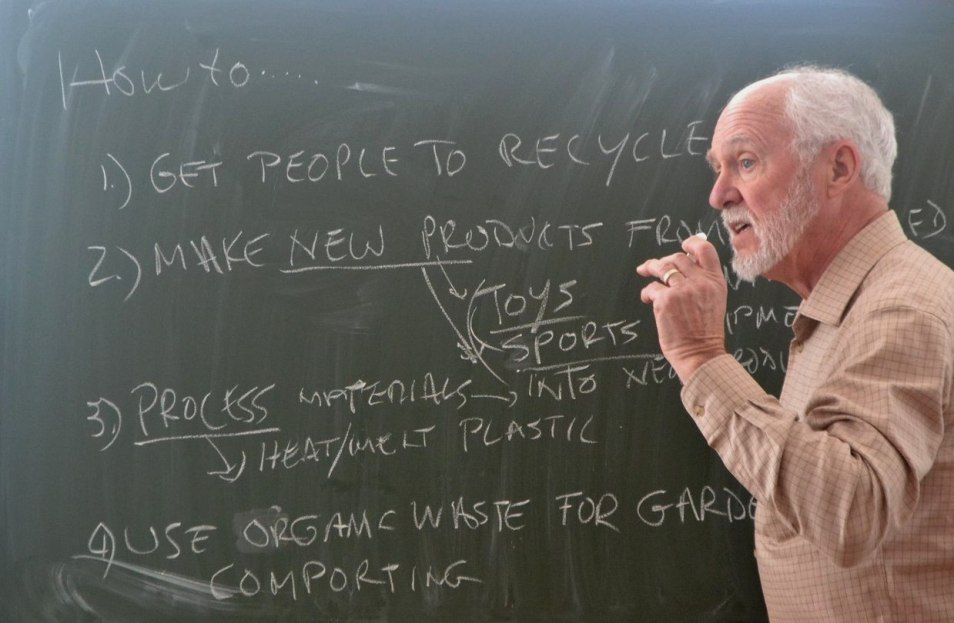 How to.....
1.) GET PEOPLE TO RECYCLE
2.) MAKE NEW PRODUCTS FROM
TOYS
SPORTS
3.) PROCESS MATERIALS → INTO NEW
↳ HEAT/MELT PLASTIC
4) USE ORGANIC WASTE FOR GARDE
COMPORTING